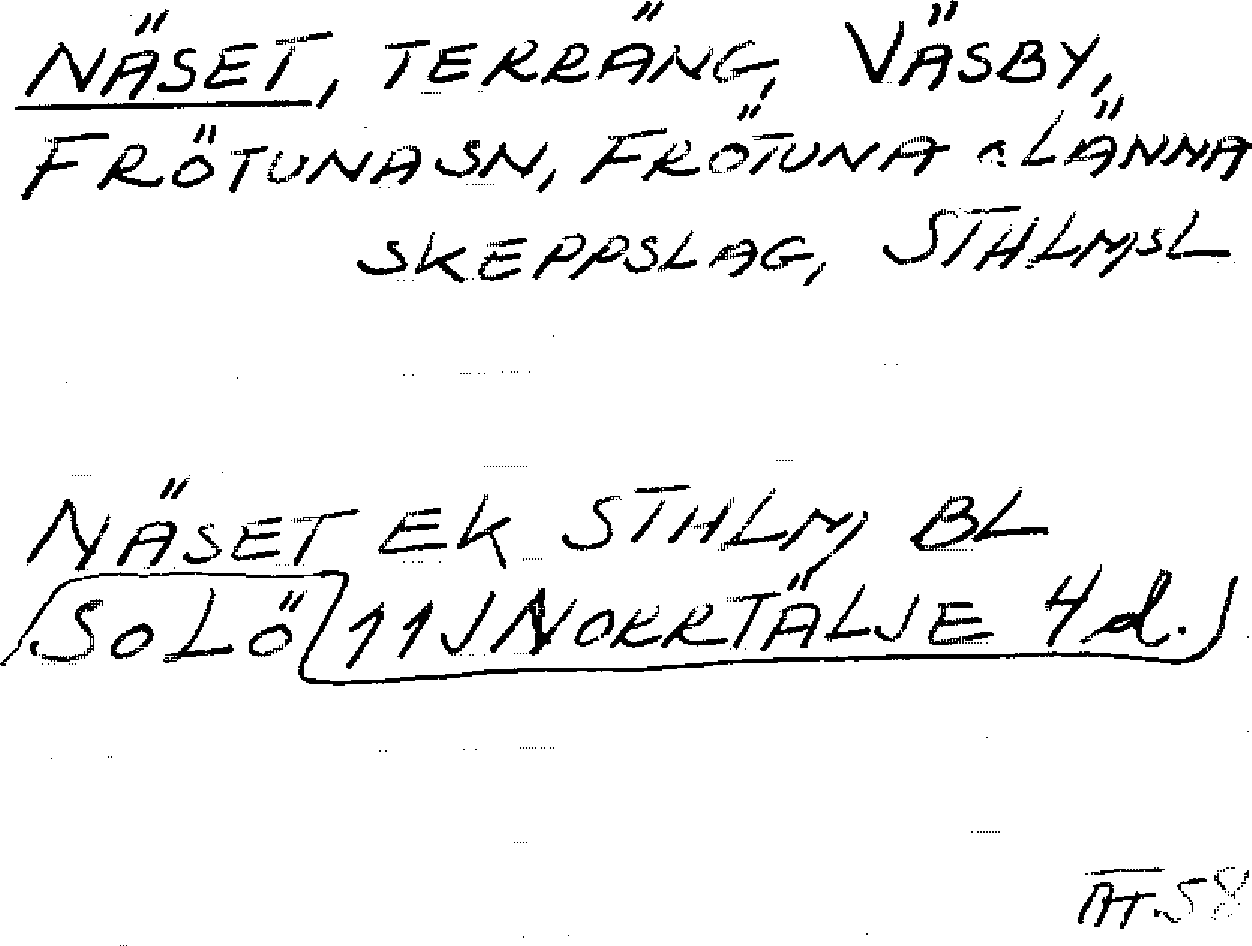 NÄSET, TERRÄNG, VÄSBY,
FRÖTUNA SN, FRÖTUNA o LÄNNA
SKEPPSLAG, STHLMSL
NÄSET EK STHLM BL
SOLÖ 11J NORRTÄLJE 4d.